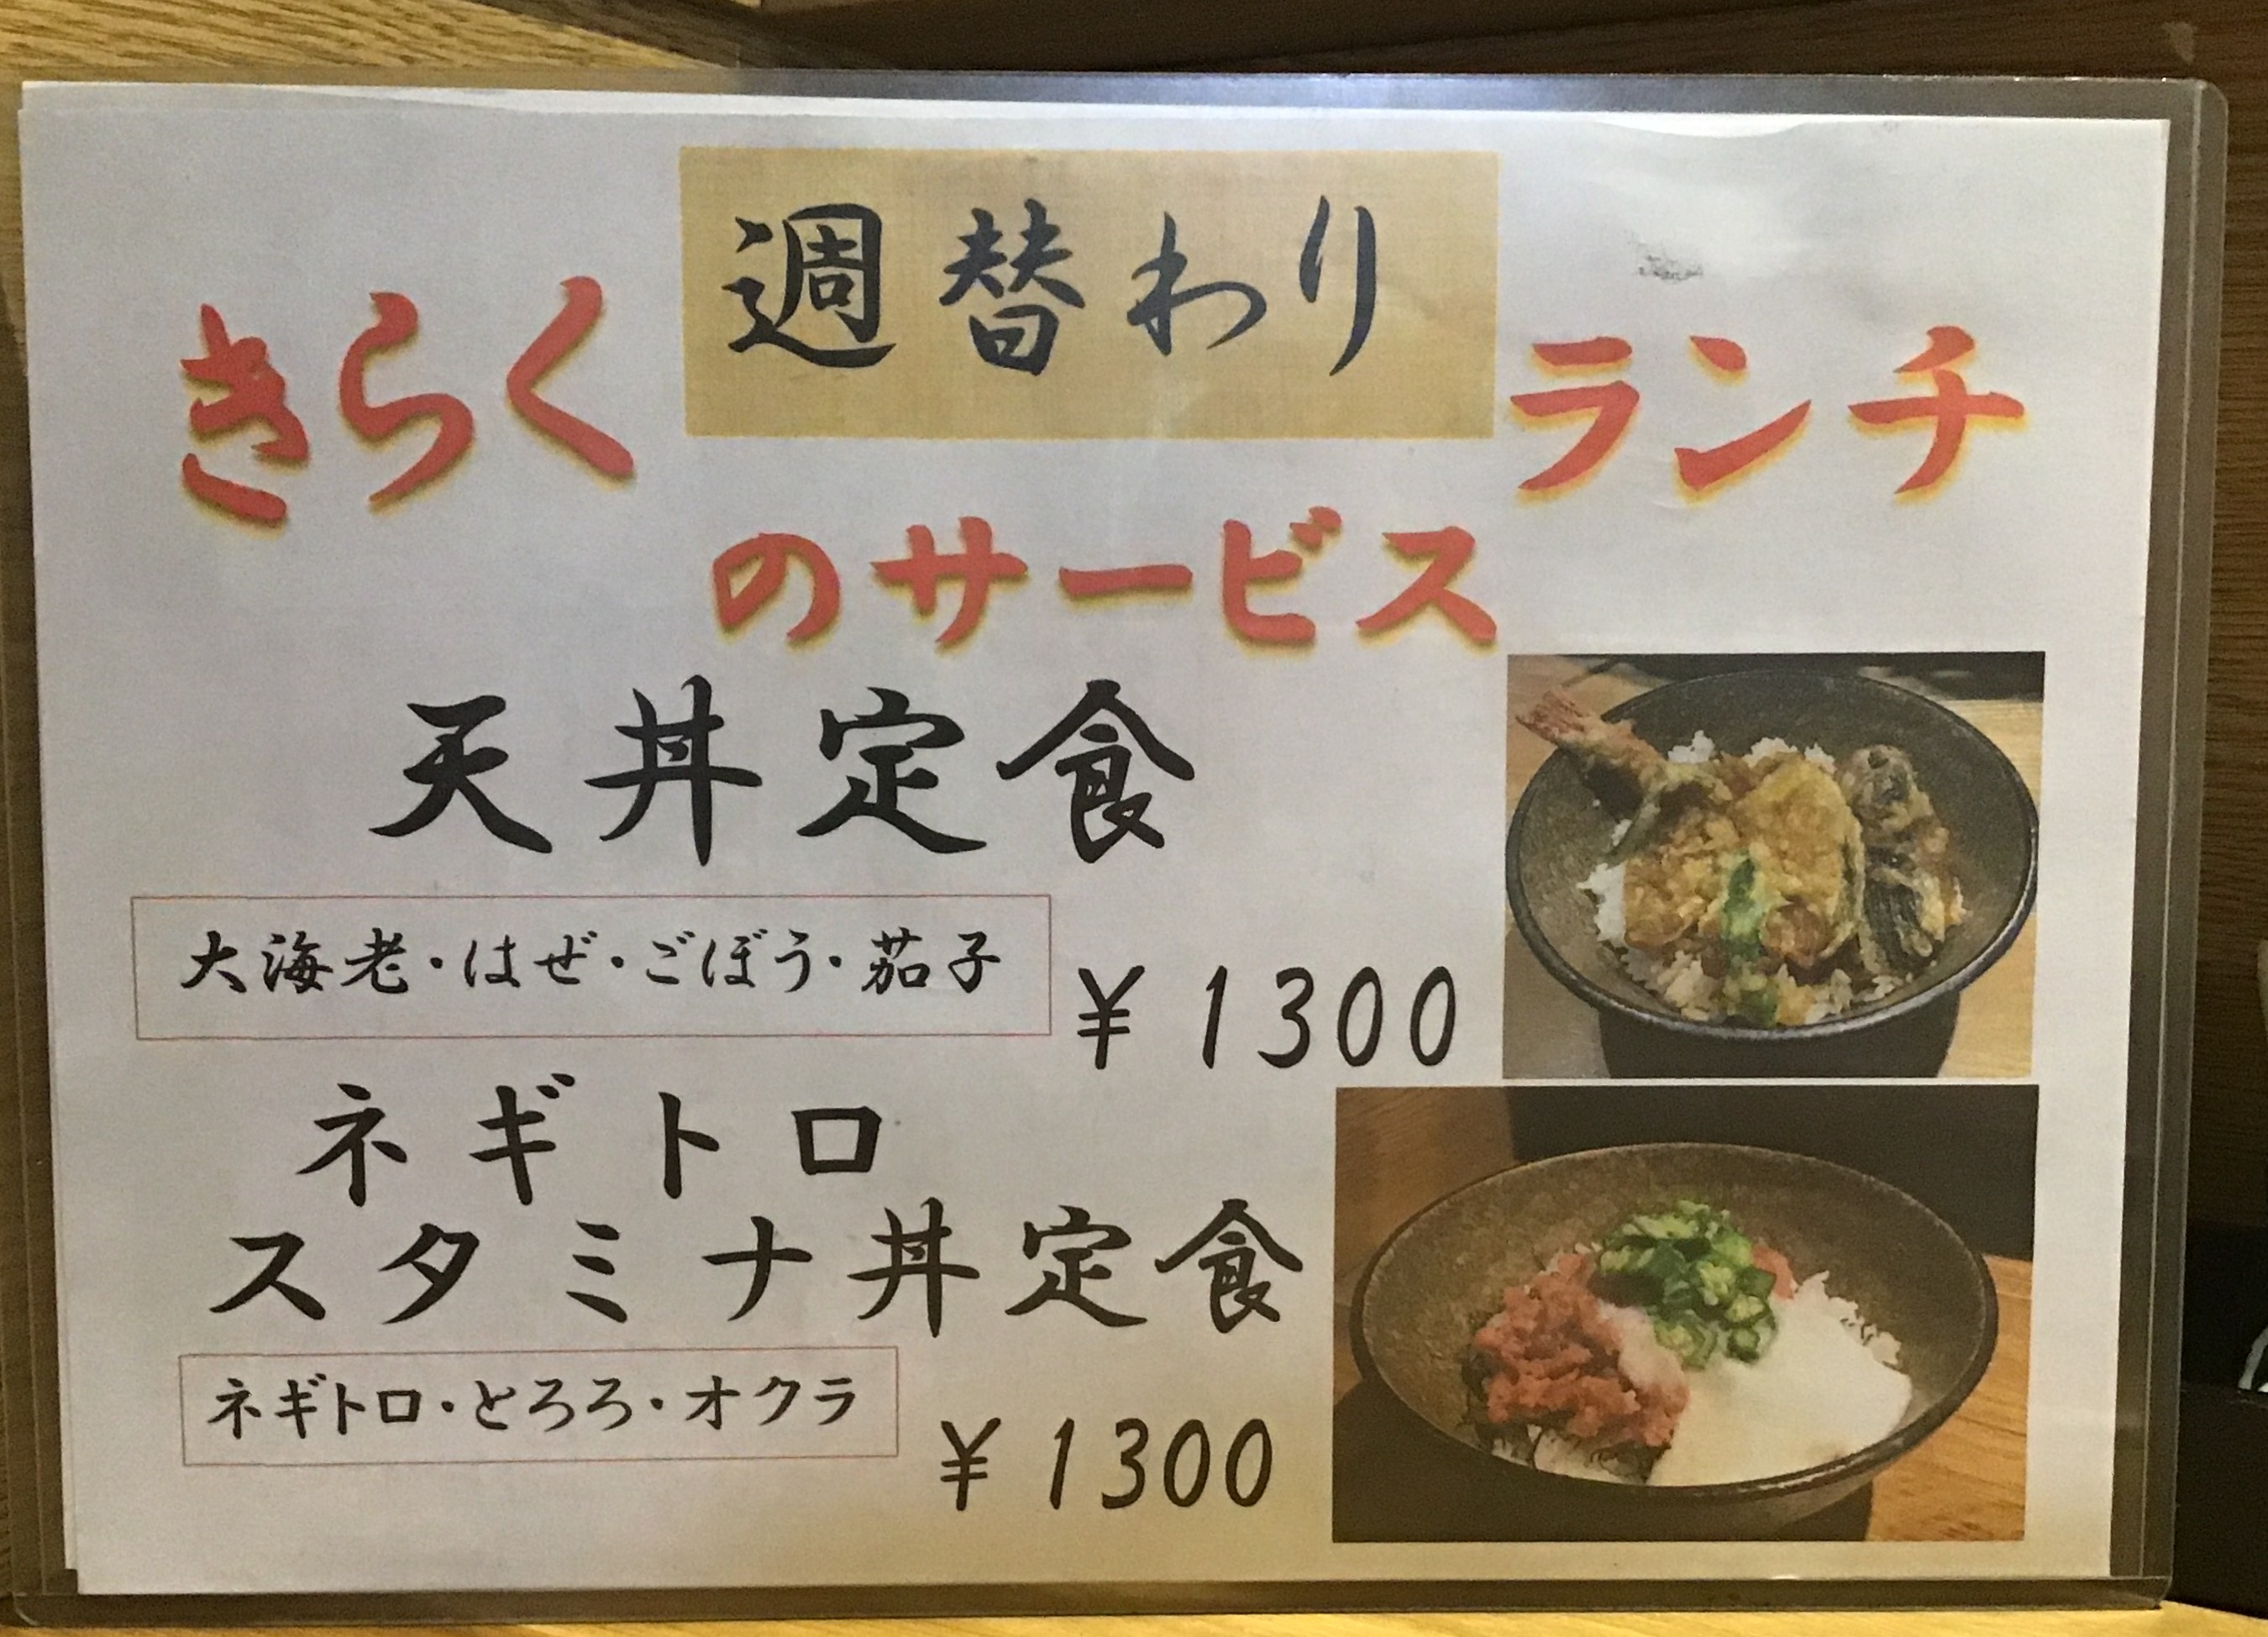 週替わり
きらく
ランチ
のサービス
天丼定食
大海老・はぜ・ごぼう・茄子
¥1300
ネギトロ
スタミナ丼定食
ネギトロ・とろろ・オクラ
¥1300